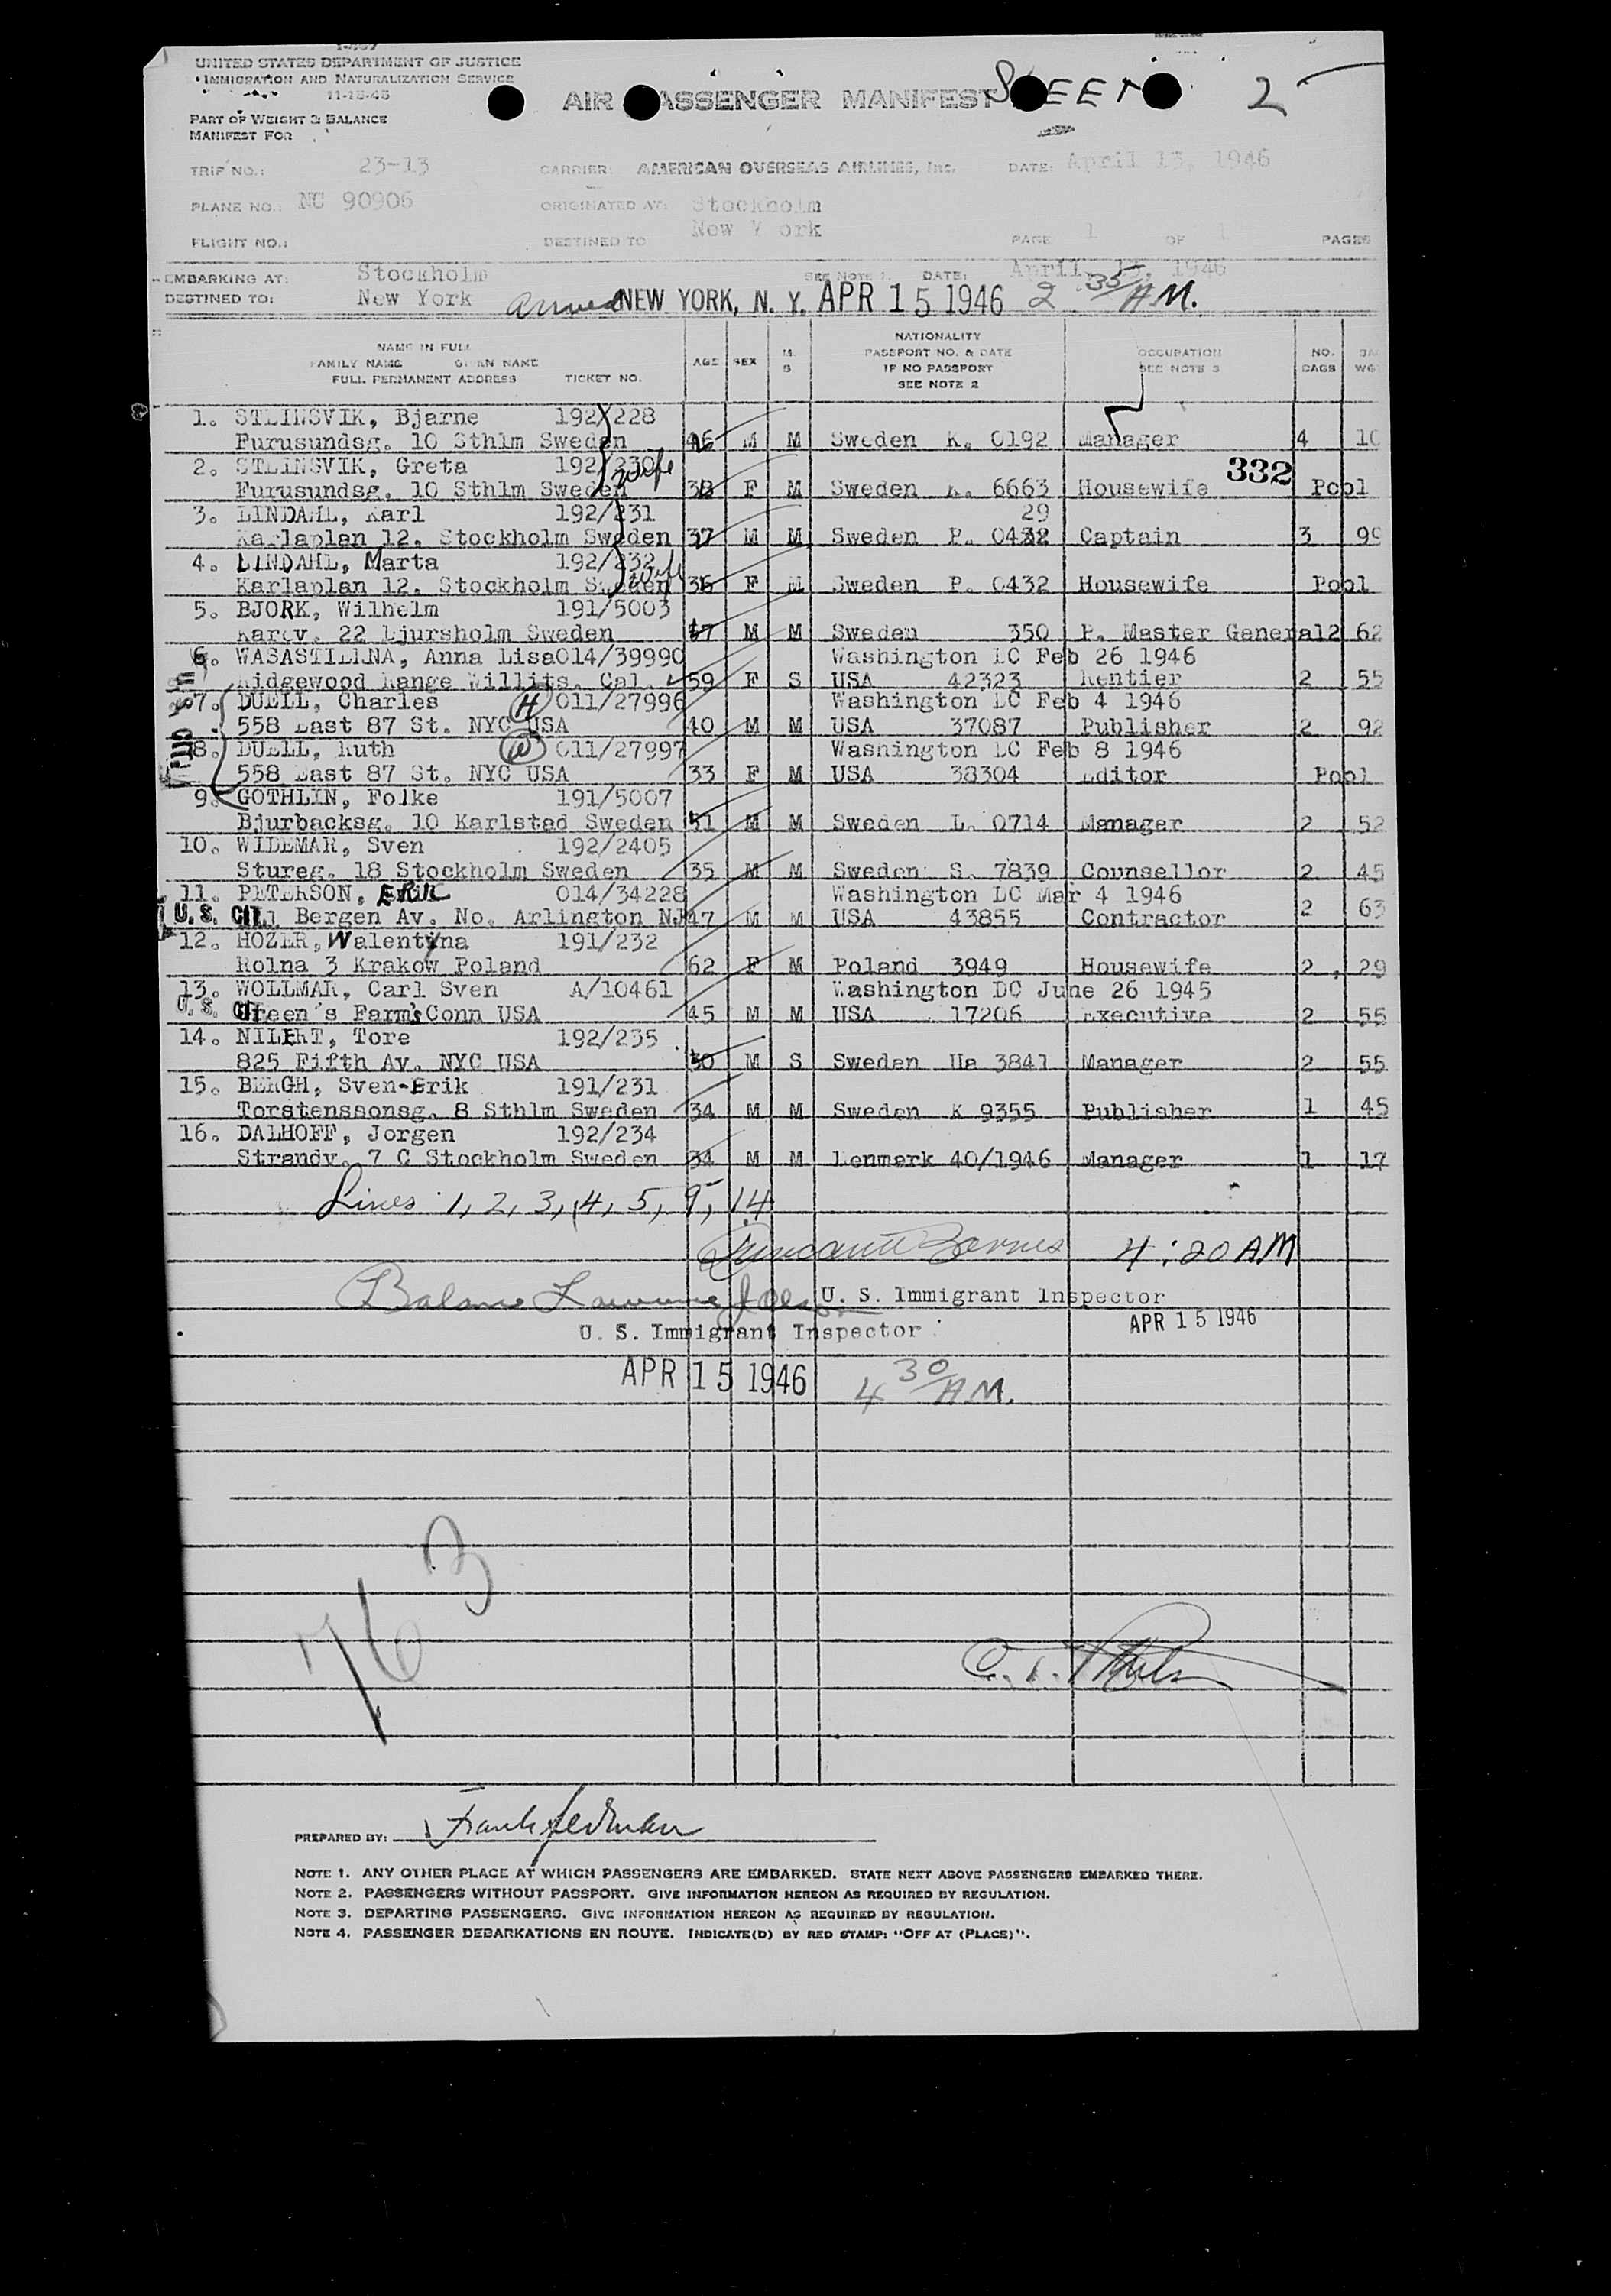 I-467
UNITED STATES DEPARTMENT OF JUSTICE
IMMIGRATION AND NATURALIZATION SERVICE
11-15-45
AIR PASSENGER MANIFEST SHEET 2
PART OF WEIGHT & BALANCE
MANIFEST FOR
TRIP NO.: 23-13 CARRIER: AMERICAN OVERSEAS AIRLINES, Inc. DATE: April 13, 1946
PLANE NO.: NC 90906 ORIGINATED AT: Stockholm
FLIGHT NO.: DESTINED TO New York PAGE 1 OF 1 PAGES
EMBARKING AT: Stockholm SEE NOTE 1. DATE: April 13, 1946
DESTINED TO: New York Arrived NEW YORK, N. Y. APR 15 1946 2 35/AM.
NAME IN FULL
FAMILY NAME GIVEN NAME
FULL PERMANENT ADDRESS TICKET NO. AGE SEX M. S. NATIONALITY PASSPORT NO. & DATE IF NO PASSPORT SEE NOTE 2 OCCUPATION SEE NOTE 3 NO. BAGS
1. STEINSVIK, Bjarne 192/228
Furusundsg. 10 Sthlm Sweden 46 M M Sweden K. 0192 Manager 4 10
2. STEINSVIK, Greta 192/230 wife 332
Furusundsg. 10 Sthlm Sweden 38 F M Sweden K. 6663 Housewife Pool
3. LINDAHL, Karl 192/231 29
Karlaplan 12, Stockholm Sweden 37 M M Sweden P. 0432 Captain 3 99
4. LINDAHL, Marta 192/232 wife
Karlaplan 12, Stockholm Sweden 36 F M Sweden P. 0432 Housewife Pool
5. BJORK, Wilhelm 191/5003
Karev. 22 Djursholm Sweden 57 M M Sweden 350 P. Master General 2 62
6. WASASTJERNA, Anna Lisa 014/39990 Washington DC Feb 26 1946
Ridgewood Range Willits, Cal. 59 F S USA 42323 Rentier 2 55
7. DUELL, Charles H 011/27996 Washington DC Feb 4 1946
558 East 87 St. NYC USA 40 M M USA 37087 Publisher 2 92
8. DUELL, Ruth W 011/27997 Washington DC Feb 8 1946
558 East 87 St. NYC USA 33 F M USA 38304 Editor Pool
9. GOTHLIN, Folke 191/5007
Bjurbacksg. 10 Karlstad Sweden 51 M M Sweden L. 0714 Manager 2 52
10. WIDEMAR, Sven 192/2405
Stureg. 18 Stockholm Sweden 35 M M Sweden S. 7839 Counsellor 2 45
11. PETERSON, ERIK 014/34228 Washington DC Mar 4 1946
U. S. CIT. Bergen Av. No. Arlington NJ 47 M M USA 43855 Contractor 2 63
12. HOZER, Walentyna 191/232
Rolna 3 Krakow Poland 62 F M Poland 3949 Housewife 2 29
13. WOLLMAR, Carl Sven A/10461 Washington DC June 26 1945
U. S. CIT. Green's Farms Conn USA 45 M M USA 17206 Executive 2 55
14. NILERT, Tore 192/235
825 Fifth Av. NYC USA 30 M S Sweden Ua 3841 Manager 2 55
15. BERGH, Sven-Erik 191/231
Torstenssonsg. 8 Sthlm Sweden 34 M M Sweden K 9355 Publisher 1 45
16. DALHOFF, Jorgen 192/234
Strandv. 7 C Stockholm Sweden 34 M M Denmark 40/1946 Manager 1 17
Lines 1, 2, 3, 4, 5, 9, 14
4:20 AM
Balance
U. S. Immigrant Inspector
APR 15 1946
U. S. Immigrant Inspector
APR 15 1946 4 30/AM.
763
PREPARED BY: Frank
NOTE 1. ANY OTHER PLACE AT WHICH PASSENGERS ARE EMBARKED. STATE NEXT ABOVE PASSENGERS EMBARKED THERE.
NOTE 2. PASSENGERS WITHOUT PASSPORT. GIVE INFORMATION HEREON AS REQUIRED BY REGULATION.
NOTE 3. DEPARTING PASSENGERS. GIVE INFORMATION HEREON AS REQUIRED BY REGULATION.
NOTE 4. PASSENGER DEBARKATIONS EN ROUTE. INDICATE(D) BY RED STAMP: "OFF AT (PLACE)".